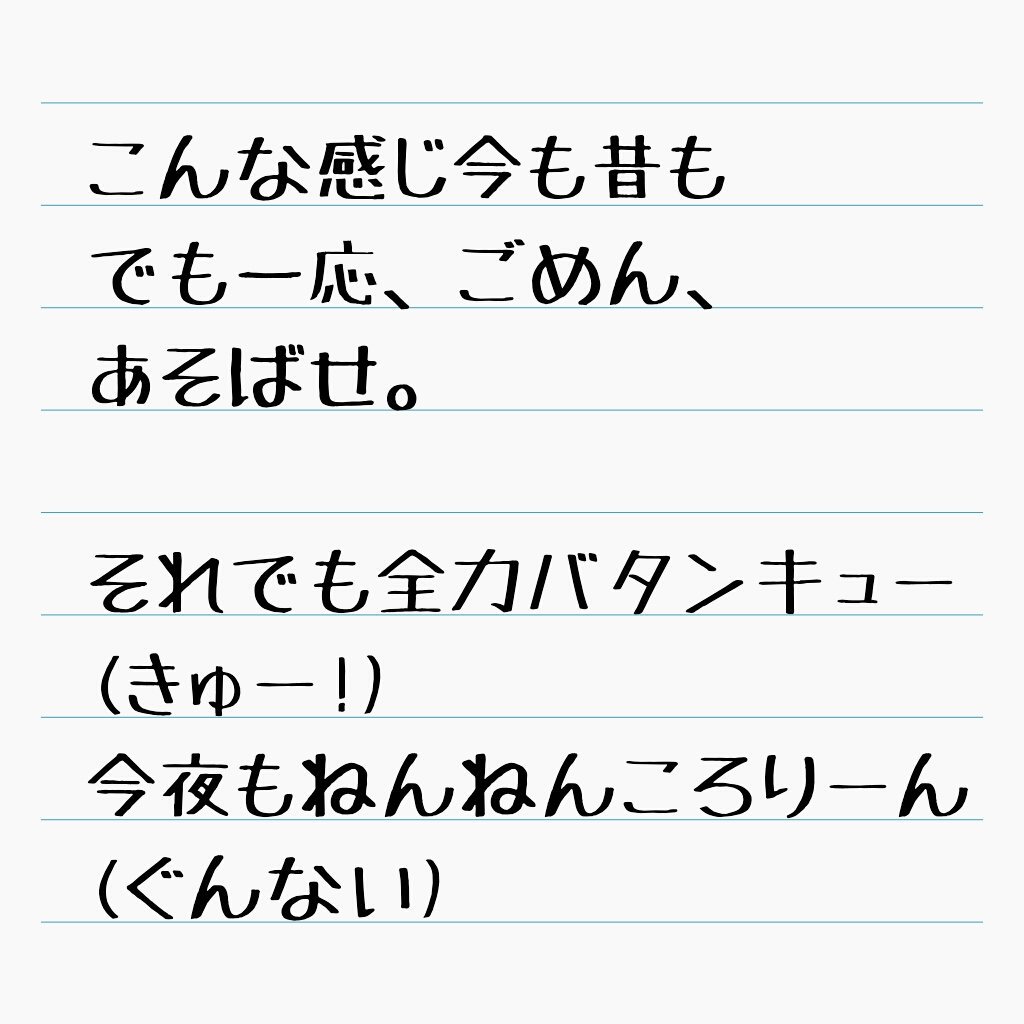 こんな感じ今も昔も
でも一応、ごめん、
あそばせ。
それでも全力バタンキュー
(きゅー!)
今夜もねんねんころりーん
(ぐんない)